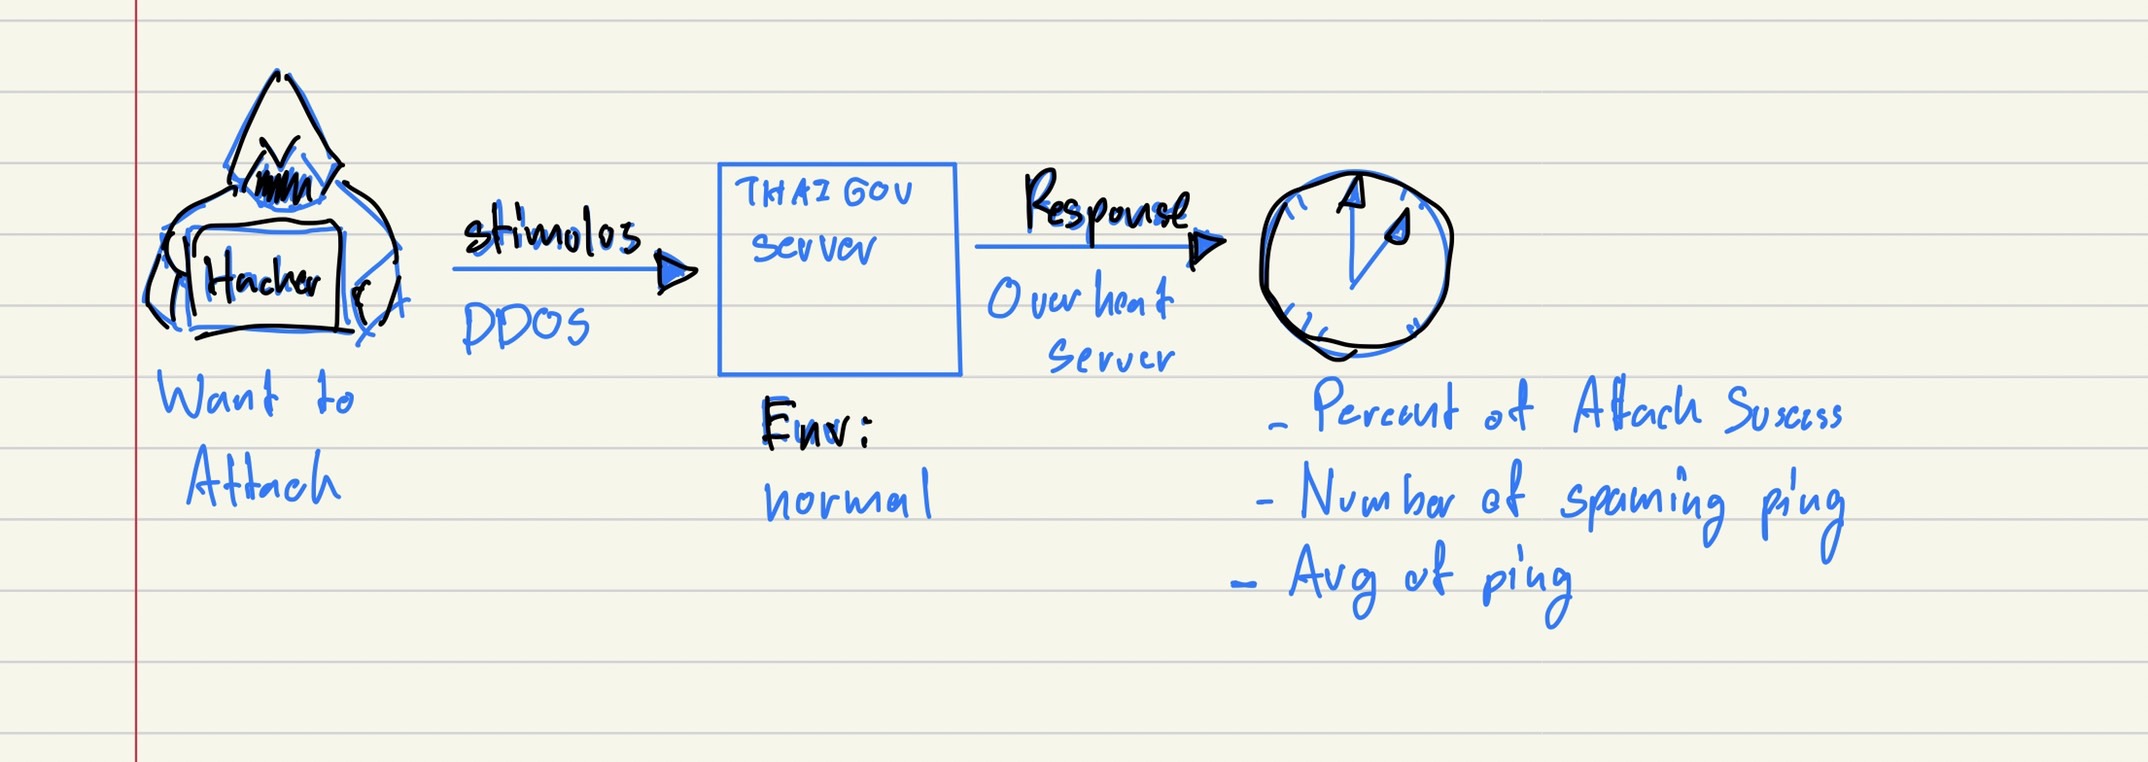 Hacker
Want to
Attach
stimolos
DDOS
THAI GOV
Server
Env:
normal
Response
Overheat
Server
- Percent of Attach Suscess
- Number of spaming ping
- Avg of ping